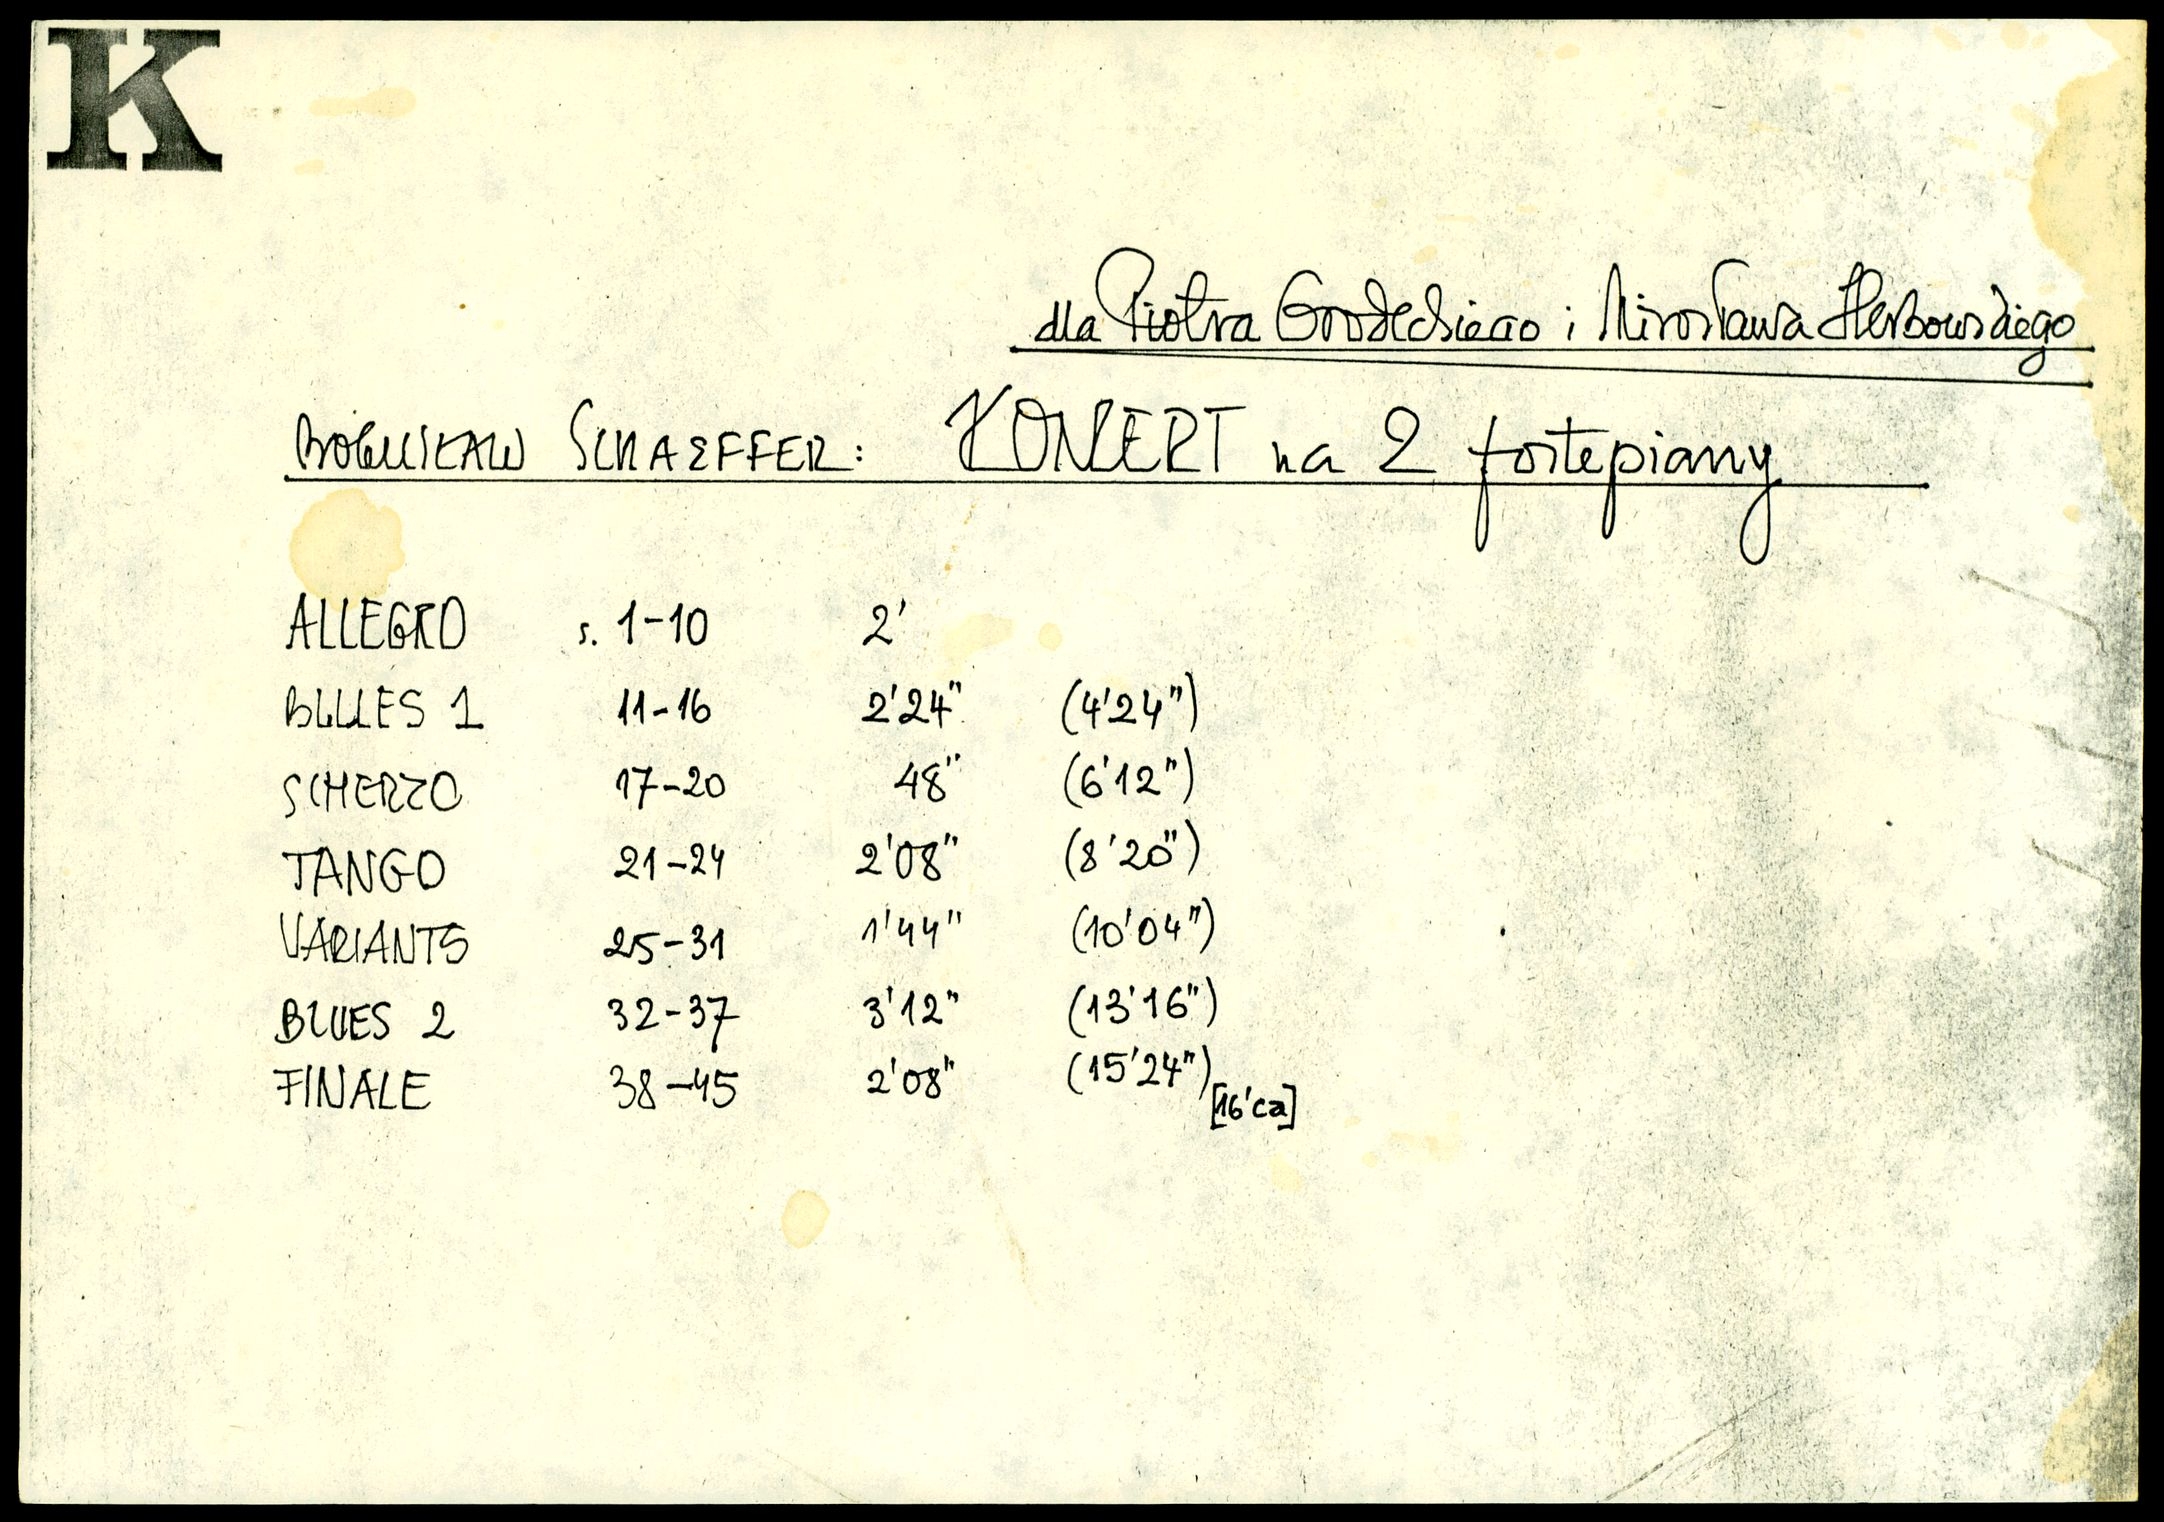 K
dla Piotra Grodeckiego i Mirosława Herbowskiego
BOGUSŁAW SCHAEFFER: KONCERT na 2 fortepiany
ALLEGRO s. 1-10 2'
BLUES 1 11-16 2'24" (4'24")
SCHERZO 17-20 48" (6'12")
TANGO 21-24 2'08" (8'20")
VARIANTS 25-31 1'44" (10'04")
BLUES 2 32-37 3'12" (13'16")
FINALE 38-45 2'08" (15'24")
[16'ca]